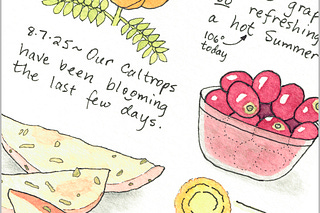 8.7.25~ Our Caltrops
have been blooming
the last few days.
grap
refreshing
a hot Summer
106°
today